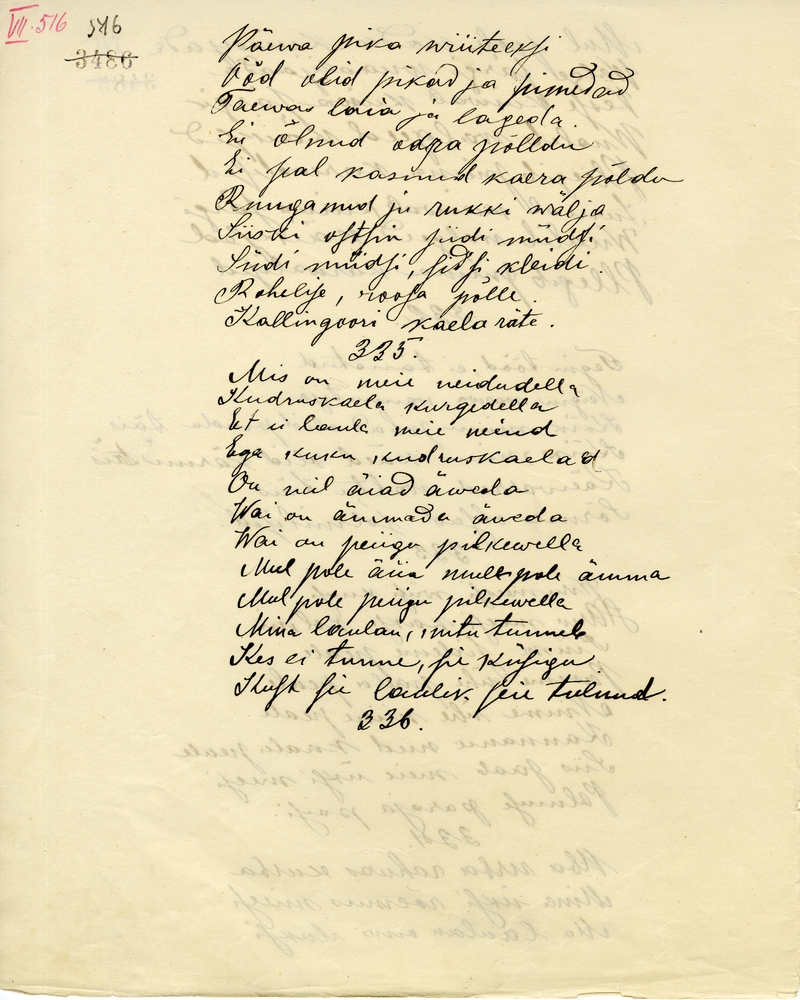 VII. 516 516
3486
Päewa pika wiiteeksi
Ööd olid pikad ja pimedad
Taewas laia ja lageda.
Ei õlnud odra põlldu
Ei pal kasnud kaera põldu
Ruuganud ju rukki wälja
Siiski ostsin siidi müdsi
Siidi müdsi, sidsi kleidi.
Rohelise, roosa põlle.
Kallingoori kaela räte.
335.
Mis on meie neidudella
Kudruskaela kurgedella
Et ei laula meie neiud
Ega kuku kudruskaelad
On neil äiad äweda
Wai on ämmada äweda
Wai on peiigu pilkewella
Mul pole äiia mull pole ämma
Mul pole peiigu pilkewella
Mina laulan, mitu tunneb
Kes ei tunne, se küsigu
Kust sie laulik seie tulnud.
336.